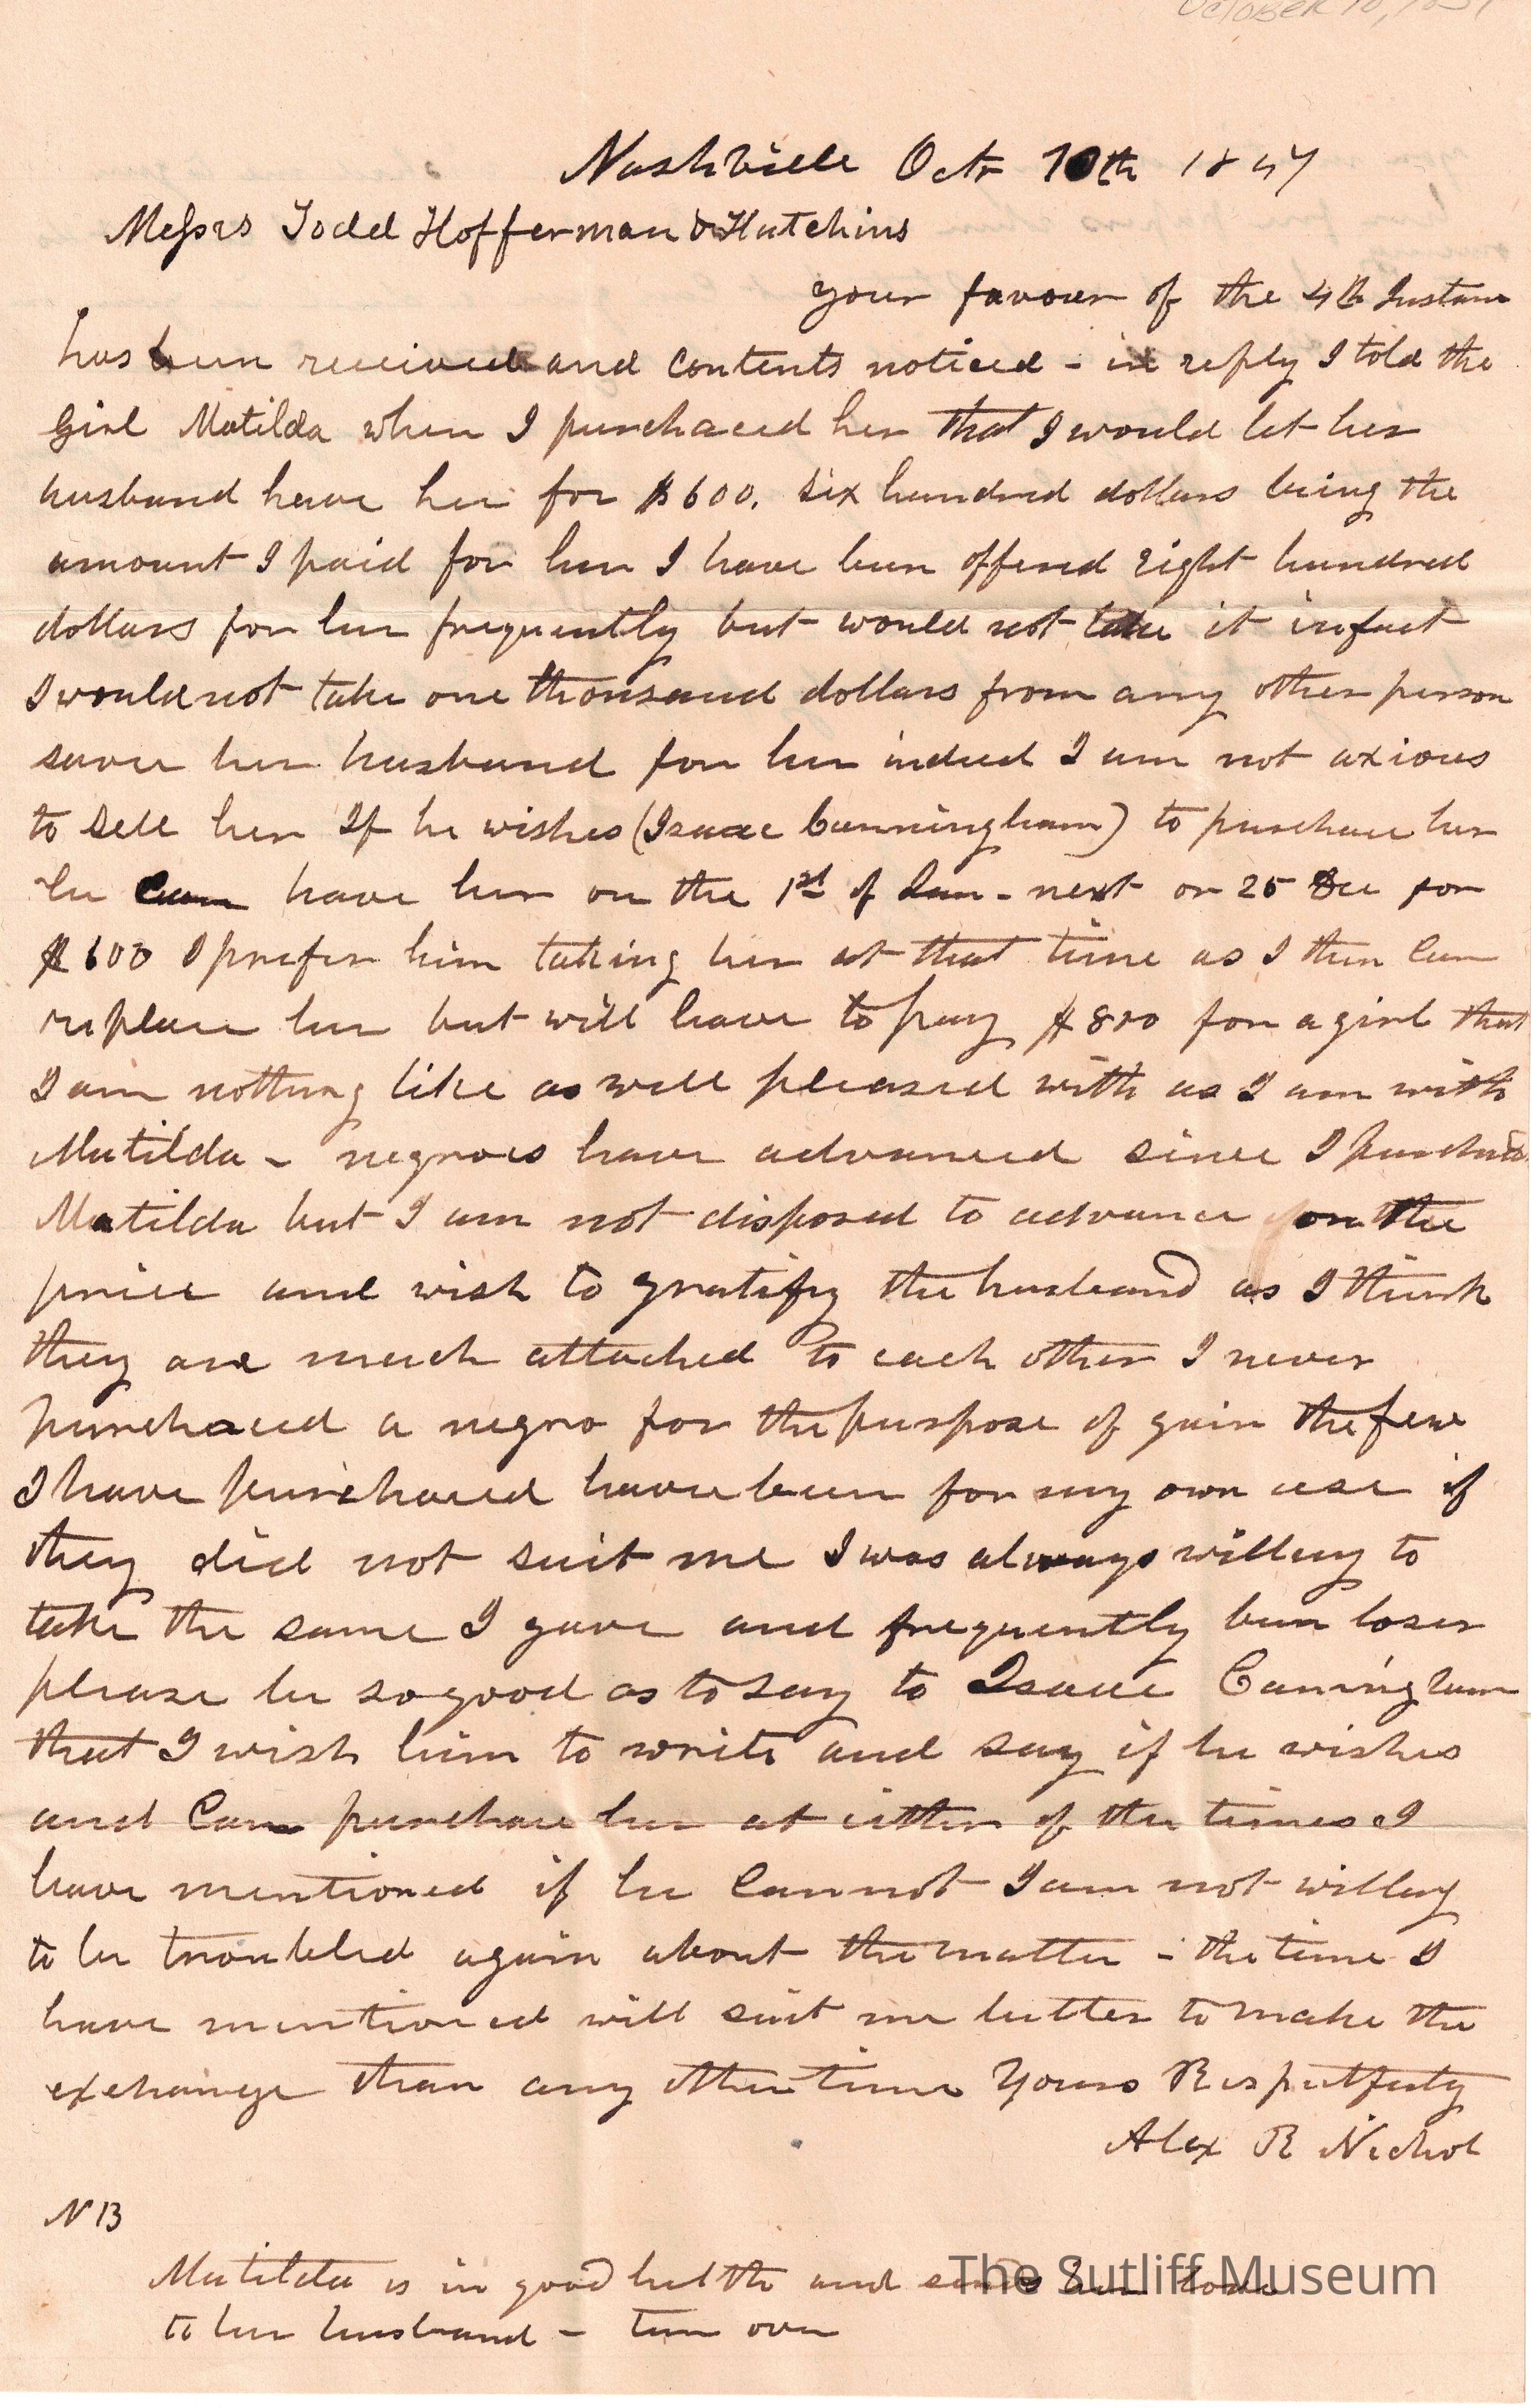 October 10, 18
Nashville Octr 10th 1847
Messrs Todd Hofferman & Hutchins
your favour of the 4th Instant
has been received and contents noticed - in reply I told the
Girl Matilda when I purchased her that I would let her
husband have her for $600. six hundred dollars being the
amount I paid for her I have been offered eight hundred
dollars for her frequently but would not take it infact
I would not take one thousand dollars from any other person
save her husband for her indeed I am not axious
to sell her If he wishes (Isaac Cunningham) to purchase her
he can have her on the 1st of Jan - next or 25 Dec for
$600 I prefer him taking her at that time as I then can
replace her but will have to pay $800 for a girl that
I am nothing like as well pleased with as I am with
Matilda - negroes have advanced since I purchased
Matilda but I am not disposed to advance on the
price and wish to gratify the husband as I think
they are much attached to each other I never
purchased a negro for the purpose of gain the few
I have purchased have been for my own use if
they did not suit me I was always willing to
take the same I gave and frequently been loser
please be so good as to say to Isaac Caningham
that I wish him to write and say if he wishes
and Can purchase her at either of the times I
have mentioned if he Cannot I am not willing
to be troubled again about the matter - the time I
have mentioned will suit me better to make the
exchange than any other time Yours Respectfuly
Alex R Nichol
N B
Matilda is in good helth and sends her love
to her husband - turn over
The Sutliff Museum